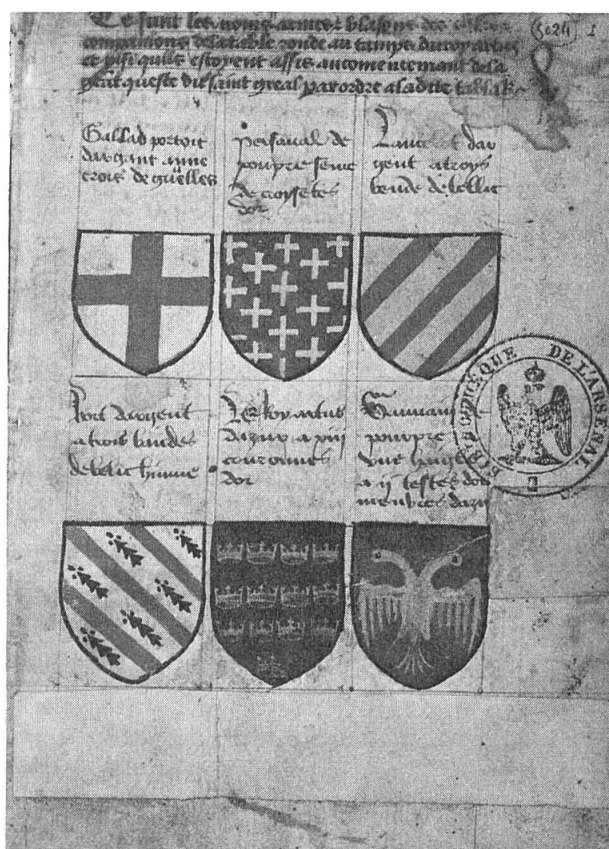 Ce sunt les noms armes & blasons des
compaignons de la table ronde au temps du roy artus
et pisi quils estoyent assis au comencemant de la
queste du saint greal par ordre a la dite table
5024 1
Gallad portoit
dargant a une
crois de guelles
Persaval de
pourpre seme
de croysetes
dor
Lancelot dar
gent a troys
bende de bellic
dargent
a trois bandes
de belic
Le Roy artus
dazur a xiij
couronnes
dor
Gauvain
pourpre
une
a ij testes dor
menbres dazu
BIBLIOTHEQUE DE L'ARSENAL